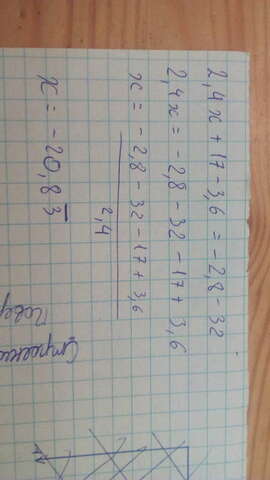 2,4x + 17 - 3,6 = -2,8 - 32
2,4x = -2,8 - 32 - 17 + 3,6
x = -2,8 - 32 - 17 + 3,6
2,4
x = -20,83̅